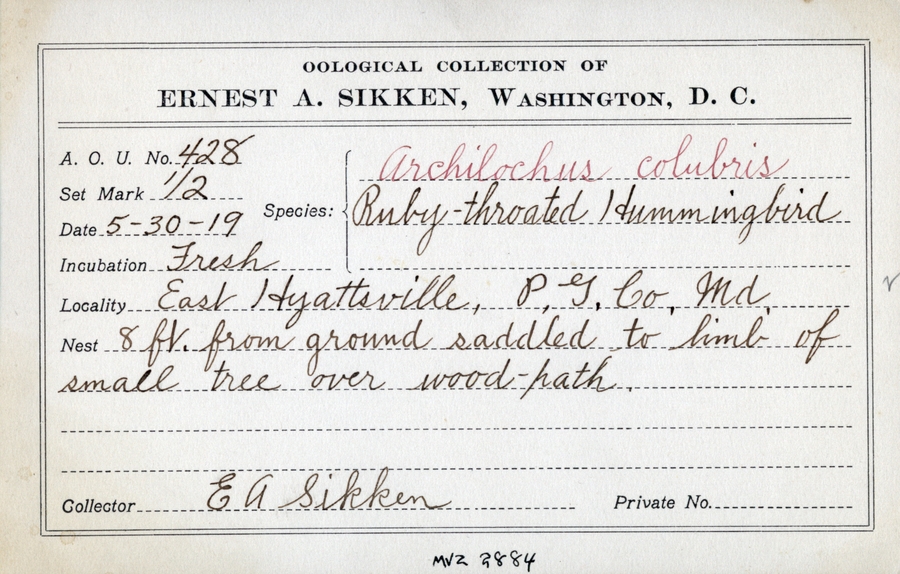 OOLOGICAL COLLECTION OF
ERNEST A. SIKKEN, WASHINGTON, D. C.
A. O. U. No. 428
Set Mark 1/2
Date 5-30-19
Incubation Fresh
Species: Archilochus colubris
Ruby-throated Hummingbird
Locality East Hyattsville, P. G. Co. Md.
Nest 8 ft. from ground saddled to limb of
small tree over wood-path.
Collector E A Sikken
Private No.
MVZ 2884